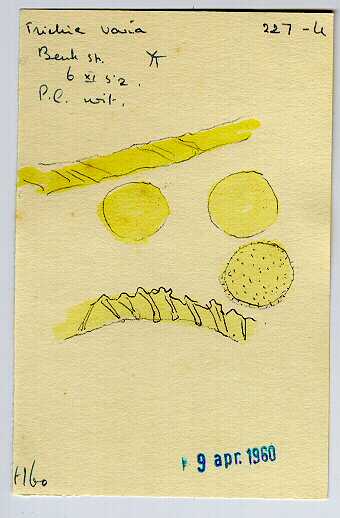 Trichia varia
227-
Beuk st.
6 XI 52.
P.C. wit.
9 apr. 1960
H60